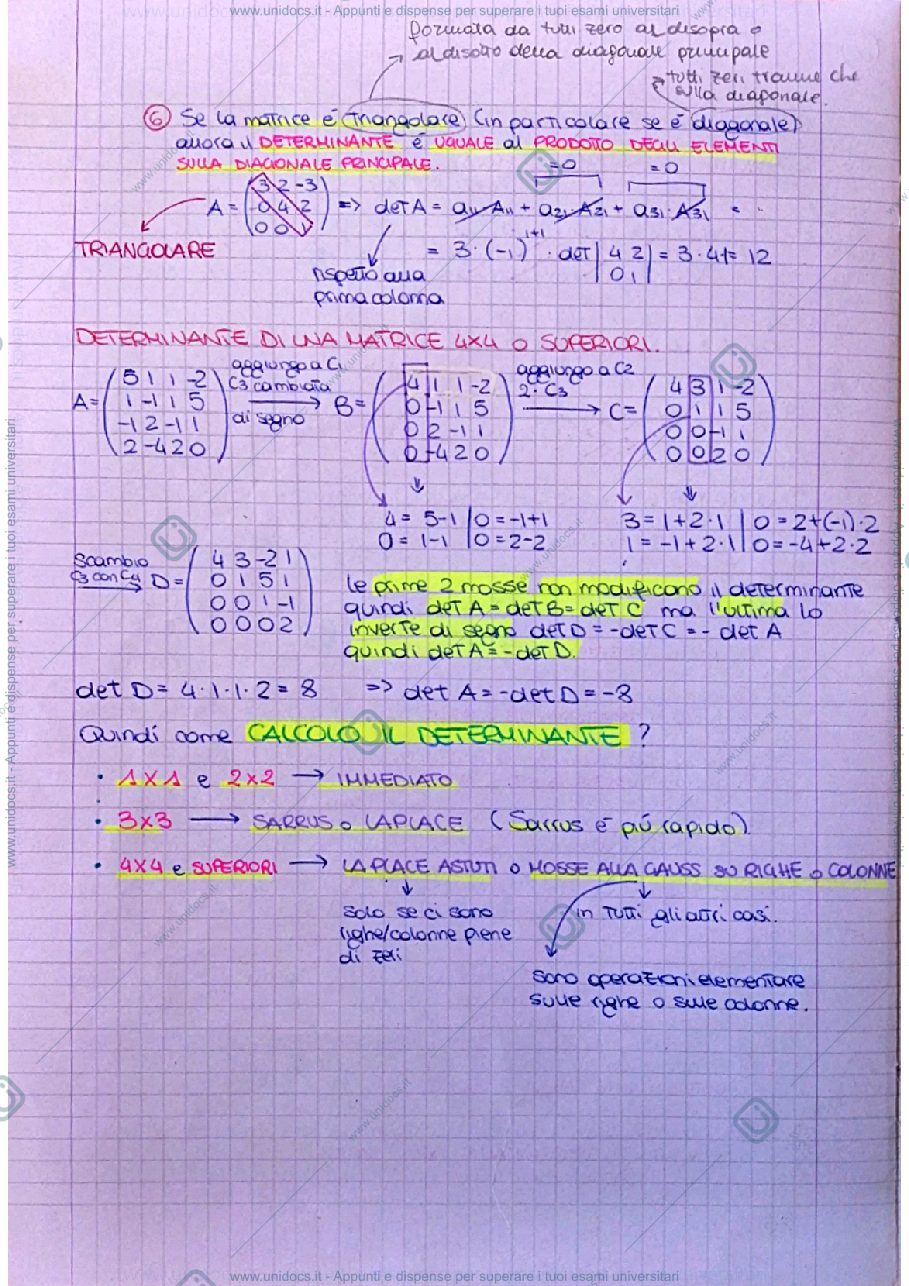 www.unidocs.it - Appunti e dispense per superare i tuoi esami universitari
formata da tutti zero al disopra o
al disotto della diagonale principale
tutti zeri tranne che
sulla diagonale.
⑥ Se la matrice è triangolare (in particolare se è diagonale)
allora il DETERMINANTE è UGUALE al PRODOTTO DEGLI ELEMENTI
SULLA DIAGONALE PRINCIPALE.
=0 =0
A = (3 2 -3 / 0 4 2 / 0 0 1) => det A = a11 A11 + a21 A21 + a31 A31 =
TRIANGOLARE
= 3 · (-1)^1+1 · det |4 2 / 0 1| = 3 · 4 · 1 = 12
rispetto alla
prima colonna
DETERMINANTE DI UNA MATRICE 4X4 O SUPERIORI.
A = (5 1 1 -2 / 1 -1 1 5 / -1 2 -1 1 / 2 -4 2 0)
aggiungo a C1
C3 cambiata
di segno
B = (4 1 1 -2 / 0 -1 1 5 / 0 2 -1 1 / 0 -4 2 0)
aggiungo a C2
2 · C3
C = (4 3 1 -2 / 0 1 1 5 / 0 0 -1 1 / 0 0 2 0)
4 = 5-1 | 0 = -1+1
0 = 1-1 | 0 = 2-2
3 = 1+2·1 | 0 = 2+(-1)·2
1 = -1+2·1 | 0 = -4+2·2
scambio
C3 con C4
D = (4 3 -2 1 / 0 1 5 1 / 0 0 1 -1 / 0 0 0 2)
le prime 2 mosse non modificano il determinante
quindi det A = det B = det C ma l'ultima lo
inverte di segno det D = -det C = - det A
quindi det A = - det D.
det D = 4·1·1·2 = 8 => det A = -det D = -8
Quindi come CALCOLO IL DETERMINANTE ?
• 1X1 e 2x2 → IMMEDIATO
• 3x3 → SARRUS o LAPLACE (Sarrus è più rapido)
• 4X4 e SUPERIORI → LAPLACE ASTUTI o MOSSE ALLA GAUSS SU RIGHE o COLONNE
solo se ci sono
righe/colonne piene
di zeri
in tutti gli altri casi.
sono operazioni elementare
sulle righe o sulle colonne.
www.unidocs.it - Appunti e dispense per superare i tuoi esami universitari